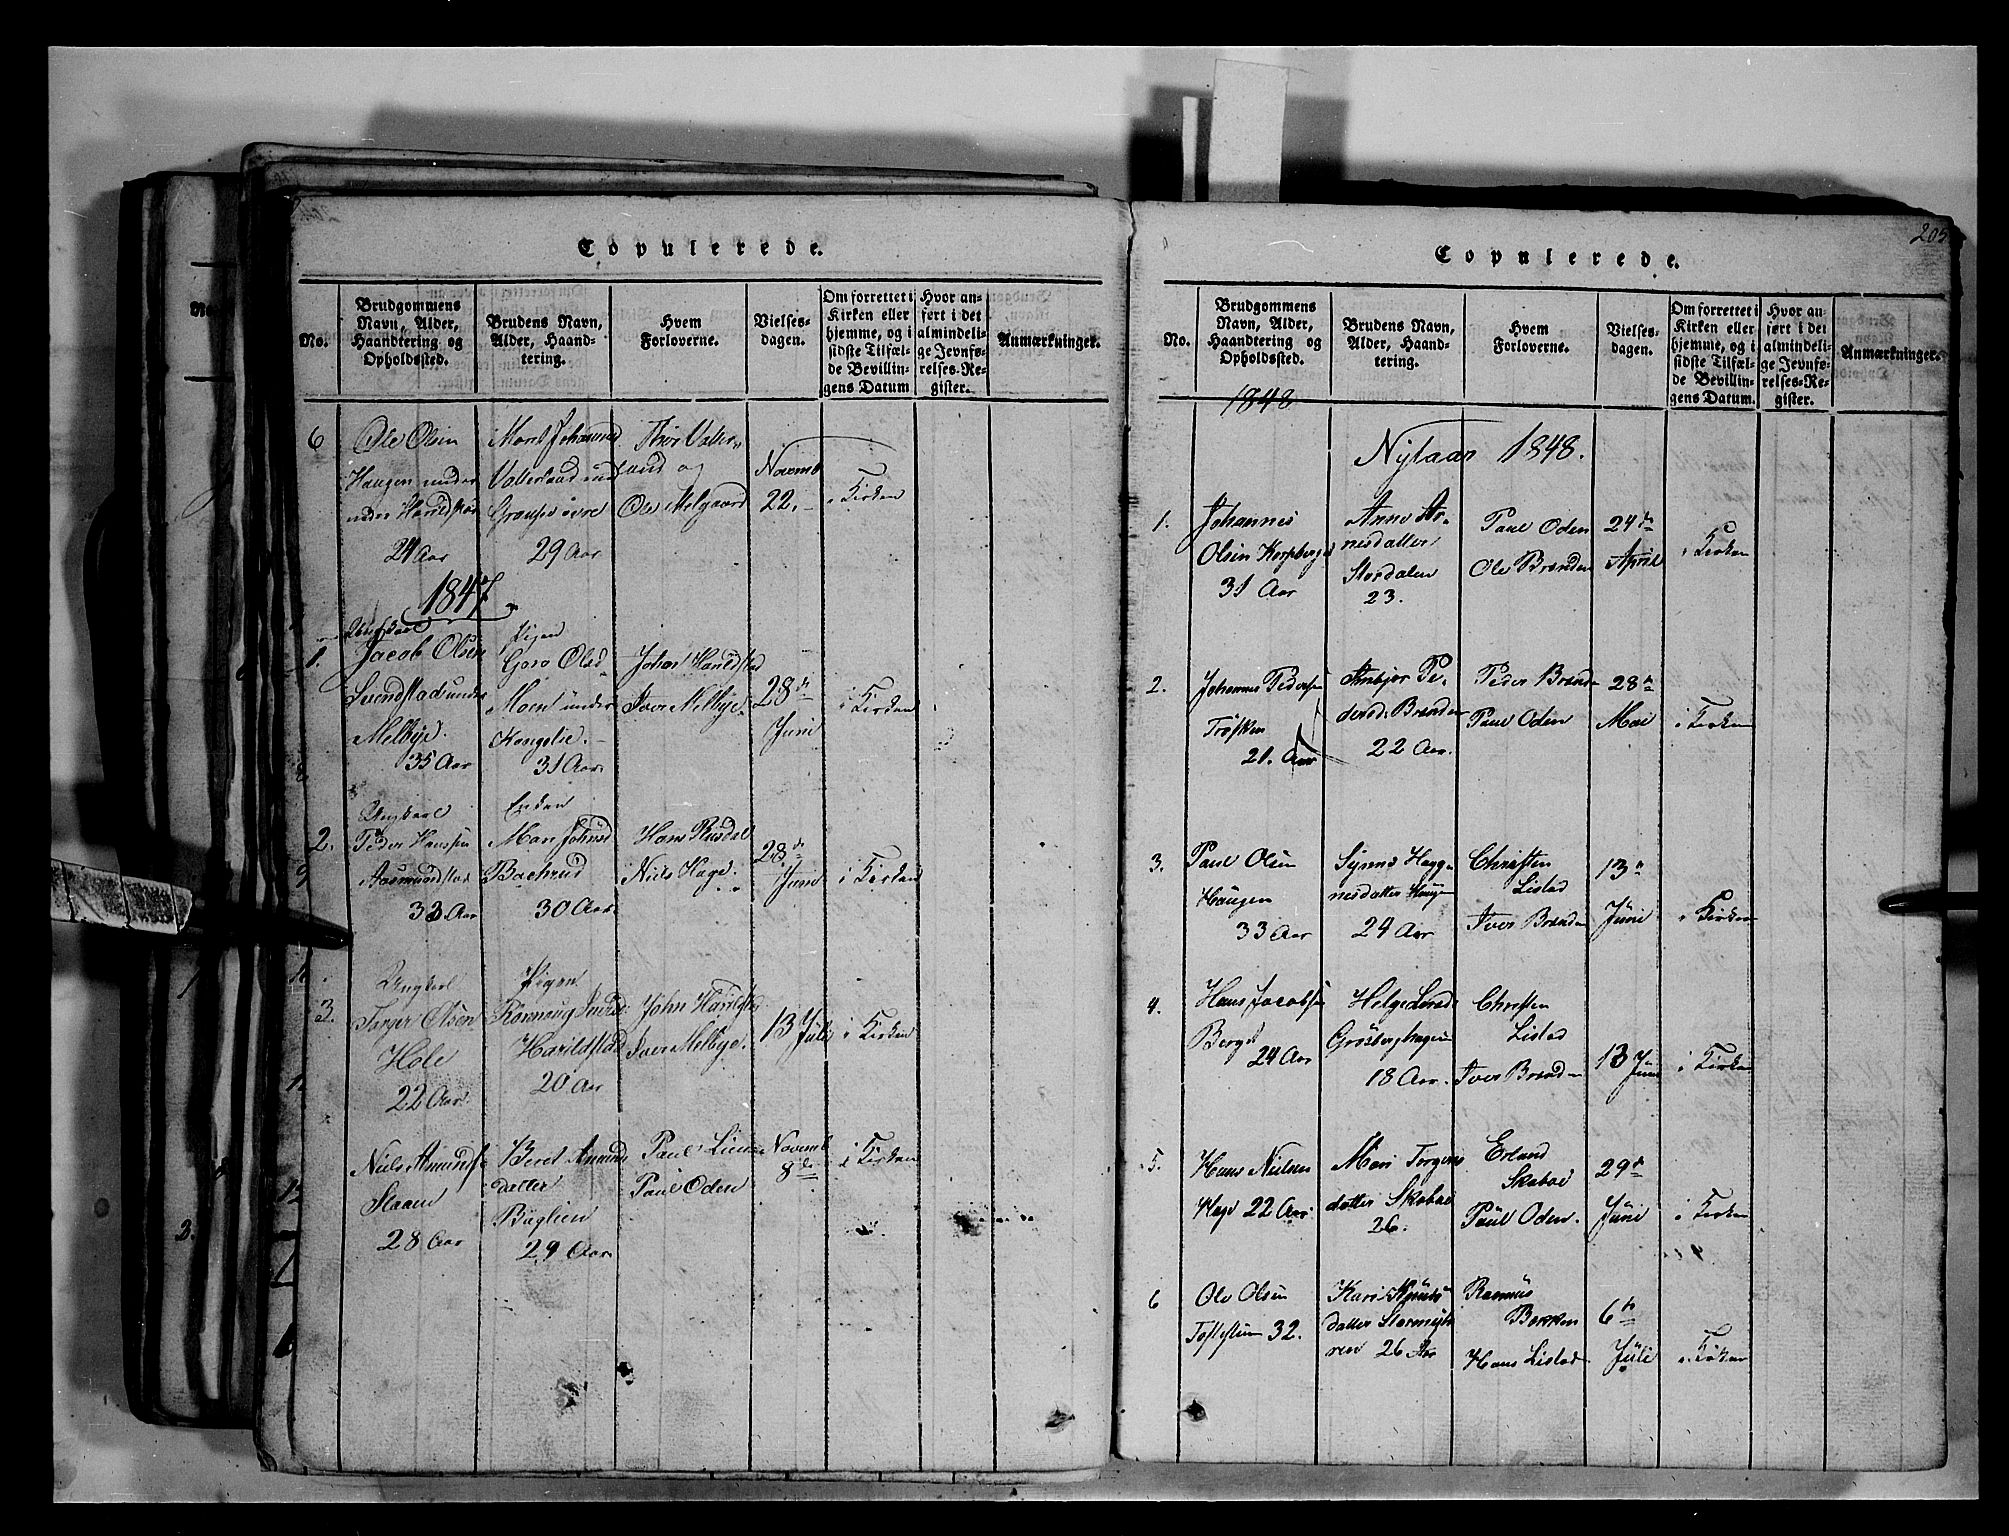 Copulerede.
No.
Brudgommens
Navn, Alder,
Haandtering og
Opholdssted.
Brudens Navn,
Alder, Haand-
tering.
Hvem
Forloverne.
Vielses-
dagen.
Om forrettet i
Kirken eller
hjemme, og i
sidste Tilfæl-
de Bevillin-
gens Datum
Hvor an-
ført i det
almindeli-
ge Jevnfø-
relses-Re-
gister.
Anmærkninger.
6
Ole Olsen
Haugen under
under Harildstad
24 Aar
Marit Johannesd
29 Aar
Ole Melgaard
Novemb
22.
i Kirken
1847
1.
Ungkarl
Jacob Olsen
Svendstad under
Melbye.
35 Aar
Pigen
Goro Olsd
Moen under
Kongslie.
31 Aar
Johan Harildstad
Iver Melbye.
28de
Juni
i Kirken
2.
Ungkarl
Peder Hanssen
Aasmundstad
33 Aar
Enken
Mari Johnsd
Bachrud
30 Aar
Hans Rusdal
Niels Hage.
28de
Juni
i Kirken
3.
Ungkarl
Torger Olsen
Hole
22 Aar.
Pigen
Rönnoug
Harildstad
20 Aar
John Harildstad
Iver Melbye.
13 Juli
i Kirken
Niels Amunds
Slaaen
28 Aar
Beret Amunds
datter
Bæglien
29 Aar
Paul Lien
Paul Oden
Novemb
8de
i Kirken
205
Copulerede.
No.
Brudgommens
Navn, Alder,
Haandtering og
Opholdssted.
Brudens Navn,
Alder, Haand-
tering.
Hvem
Forloverne.
Vielses-
dagen.
Om forrettet i
Kirken eller
hjemme, og i
sidste Tilfæl-
de Bevillin-
gens Datum.
Hvor an-
ført i det
almindeli-
ge Jevnfø-
relses-Re-
gister.
Anmærkninger.
1848
Nytaar 1848.
1.
Johannes
Olsen Korpberget
31 Aar
Anne Ar-
nesdatter
Stordalen
23.
Paul Oden
Ole Brænden
24de
April
i Kirken
2.
Johannes Pedersen
Trosken
21. Aar
Ambjør Pe-
dersd. Brænden
22 Aar.
Peder Brænde
Paul Oden
28de
Mai
i Kirken
3.
Paul Olsen
Haugen
33 Aar
Synnø Hage-
nesdatter Haugen
24 Aar
Christen
Listad
Iver Brænden
13de
Juni
i Kirken
4.
Hans Jacobsen
Berget
24 Aar
Helge
Grösberghagen
18 Aar.
Christen
Listad
Iver Brænden
13 Juni
i Kirken
5.
Hans Nielsen
Hage 22 Aar.
Mari Torgers
datter Skaboe
26.
Erland
Skaboe
Paul Oden.
29de
Juni
i Kirken
6
Ole Olsen
Toftestuen 32.
Kari Knuds
datter Stormyh
ren 26 Aar
Rasmus
Bakken
Hans Listad
6te
Juli
i Kirken